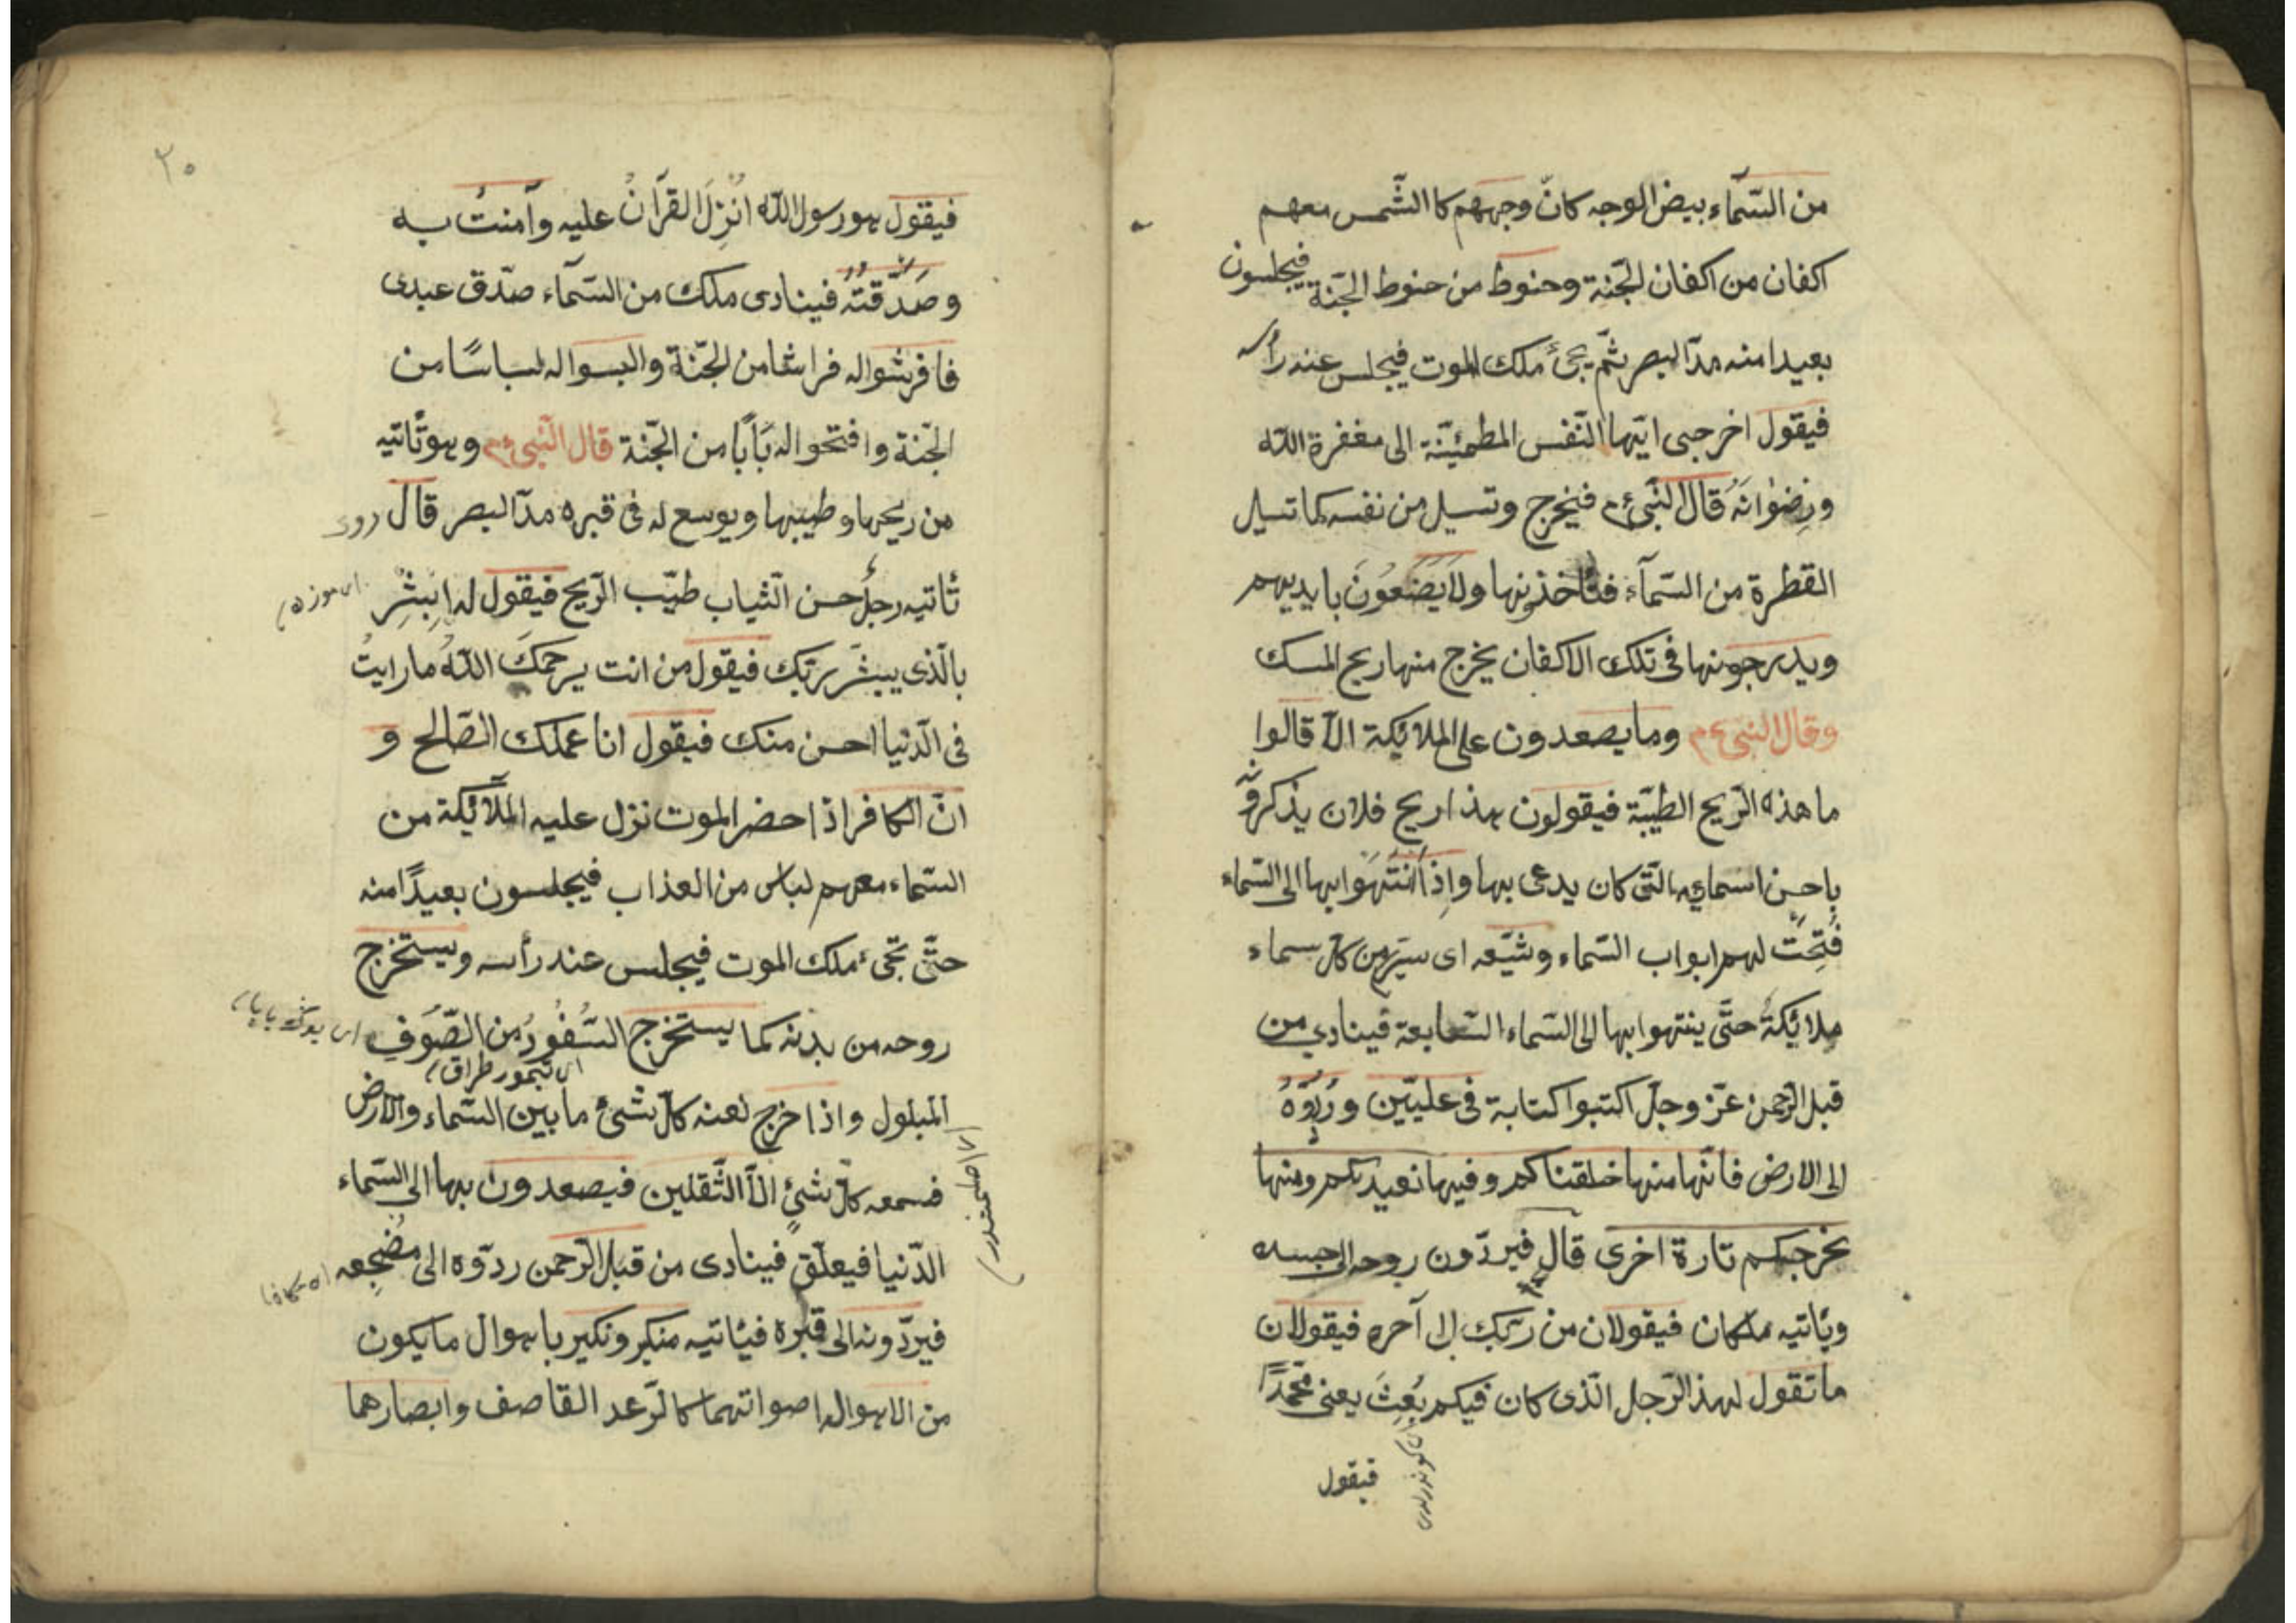 من السّمآء بيض الوجه كانّ وجههم كا الشّمس معهم
اكفان من اكفان الجّنة وحنوط من حنوط الجّنة فيجلسون
بعيدا منه مدّ البصر ثمّ يجئ ملك الموت فيجلس عند رأسه
فيقول اخرجى ايّتها النّفس المطمئنّة الى مغفرة اللّه
ورِضْوانَهُ قال النّبى ءم فيخرج وتسيل من نفسه كما تسيل
القطرة من السّمآء فئاخذونها ولا يَضَعُونَ بايديهم
ويدرجونها فى تلك الاكفان يخرج منها ريح المسك
وقال النبى ءم وما يصعدون على الملائكة الّا قالوا
ما هذه الرّيح الطيّبة فيقولون هذا ريح فلان يذكر
باحسن اسمايه الّتى كان يدعى بها واِذا انْتَهَوا بها الى السّماء
فُتِحَتْ لهم ابواب السّماء وشيّعه اى سيّر من كلّ سماء
ملائكةُ حتّى ينتهوا بها الى السّماء السّابعة فينادي من
قبل الرّحمن عزّ وجلّ اكتبوا كتابة فى علّيّين ورُدّوهُ
الى الارض فانّها منها خلقناكم وفيها نعيدكم ومنها
نخرجكم تارة اخرى قال فيردّون روحه الى جسده
ويأتيه ملكان فيقولان من ربّك الى آخره فيقولان
ما تقول لهذ الرّجل الّذى كان فيكم بُعِثَ يعنى محمّدًا
فيقول
٢٠
فيقول هو رسول اللّه اُنْزِلَ القرآنُ عليه وآمنتُ به
وصَدَّقتُهُ فينادى ملك من السّمآء صدّق عبدى
فافرشوا له فراشا من الجّنة والبسوا له لباسًا من
الجّنة وافتحوا له بَابًا من الجّنة قال النّبى ءم وهو تأتيه
من ريحها وطيبها ويوسع له فى قبره مدّ البصر قال
تأتيه رجلٌ حسن الثياب طيّب الرّيح فيقول له اِبْشِرْ
بالّذى يبشّر بربّك فيقول من انت يرحمكَ اللّهُ ما رايتُ
فى الدّنيا احسن منك فيقول انا عملك الصّالح و
انّ الكافر اذا حضر الموت نزل عليه الملآئكة من
السّماء معهم لباس من العذاب فيجلسون بعيدًا منه
حتّى تجئ ملك الموت فيجلس عند رأسه ويستخرج
روحه من بدنه كما يستخرج السّفُّودُ من الصّوفِ
اى تيمور طراق
المبلول واذا خرج لعنه كلّ شئ ما بين السّماء والارض
فسمعه كلّ شئٍ الّا الثّقلين فيصعدون بها الى السّماء
الدّنيا فيعلّق فينادى من قبل الرّحمن ردّوه الى مضجعه
فيردّونه الى قبره فيئاتيه منكر ونكير باهوال ما يكون
من الاهوال اصواتهما كالرّعد القاصف وابصارهما